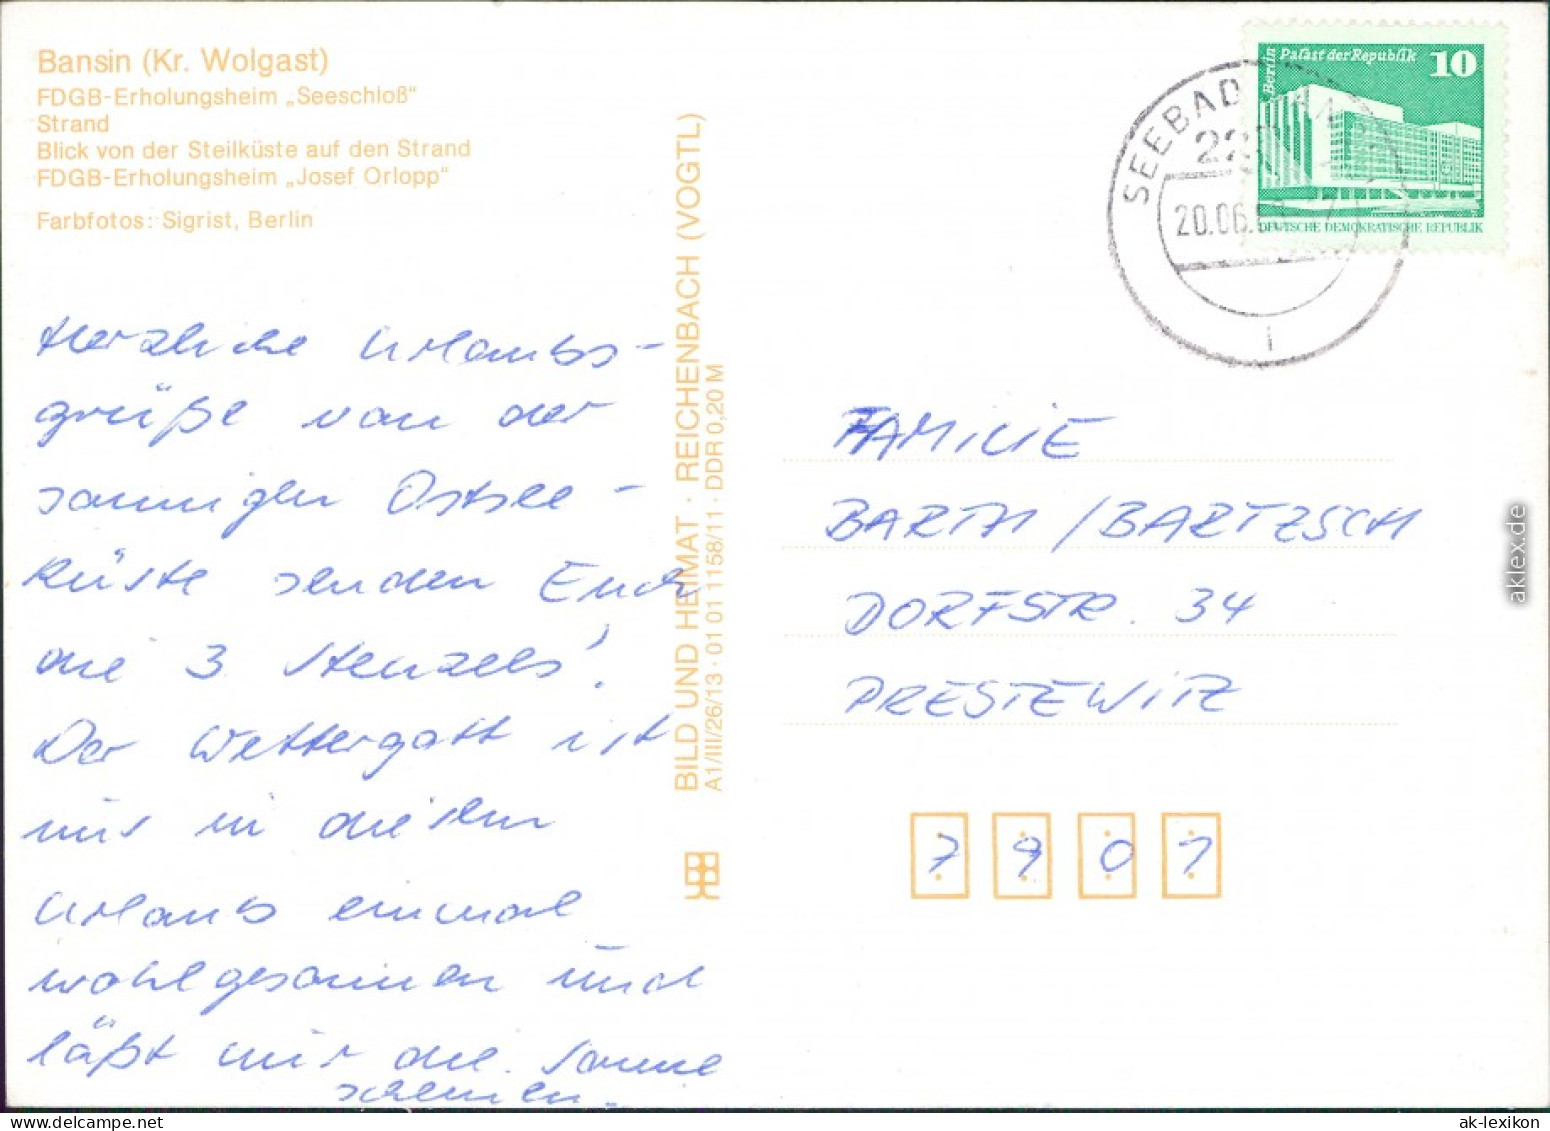 Bansin (Kr. Wolgast)
FDGB-Erholungsheim „Seeschloß"
Strand
Blick von der Steilküste auf den Strand
FDGB-Erholungsheim „Josef Orlopp"
Farbfotos: Sigrist, Berlin
Herzliche Urlaubs-
grüße von der
sonnigen Ostsee-
Küste senden Euch
die 3 Stenzels!
Der Wettergott ist
uns in diesem
Urlaub einmal
wohlgesonnen und
läßt nur die Sonne
scheinen.
BILD UND HEIMAT · REICHENBACH (VOGTL)
A1/III/26/13 · 01 01 1158/11 · DDR 0,20 M
Berlin
Palast der Republik
10
DEUTSCHE DEMOKRATISCHE REPUBLIK
SEEBAD
20.06.
FAMILIE
BARTH / BARTZSCH
DORFSTR. 34
PRESTEWITZ
7901
aklex.de
ak-lexikon